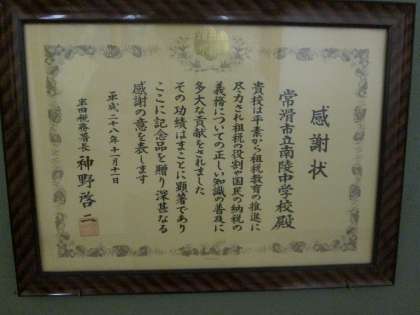 感謝状
常滑市立南陵中学校殿
貴校は平素から租税教育の推進に
尽力され租税の役割や国民の納税の
義務についての正しい知識の普及に
多大な貢献をされました
その功績はまことに顕著であり
ここに記念品を贈り深甚なる
感謝の意を表します
平成二十八年十一月十一日
半田税務署長 神野啓二